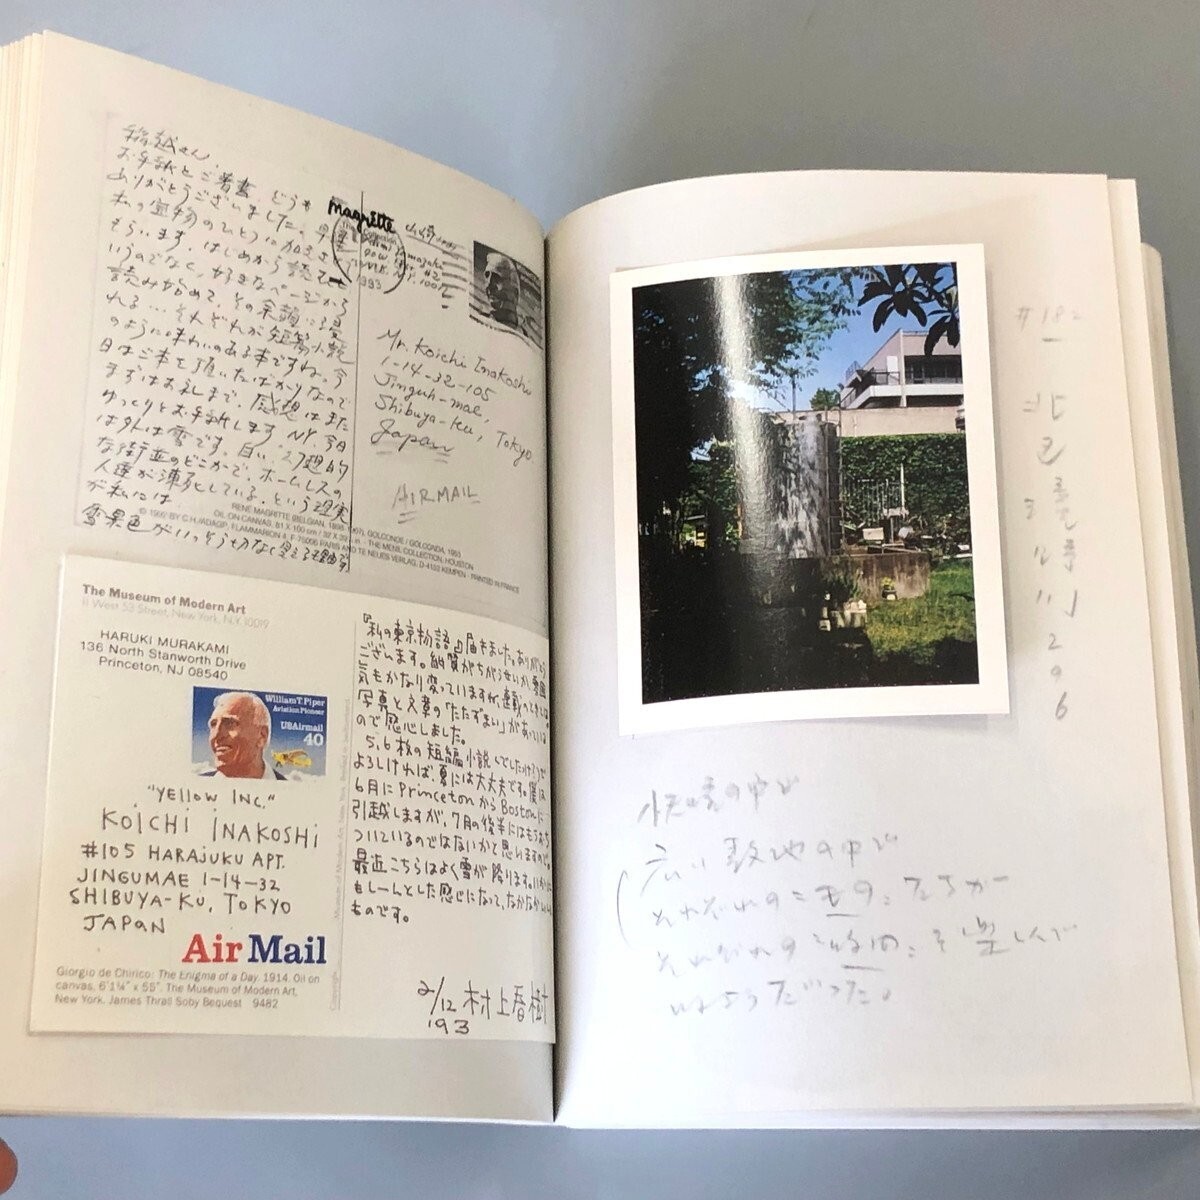 稲越さん、
お手紙とご著書 どうも
ありがとうございました。早速
私の宝物のひとつに加えさせて
もらいます。はじめから読む
いうのでなく、好きなページから
読み始めて、その余韻に
れる… それぞれが短篇小説
のように味わいのある本ですね。今
日はご本を頂いたばかりなので
まずはお礼まで。感想はまた
ゆっくりとお手紙します。NY、今日
は外は雪です。白い、幻想的
な街並のどこかで、ホームレスの
人達が凍死している、という現実
が私には
雪景色がいっそう切なく見える理由
magrette
1993
Mr. Koichi Inakoshi
1-14-32-105
Jinguh-mae,
Shibuya-ku, Tokyo.
Japan
AIRMAIL
RENÉ MAGRITTE (BELGIAN, 1898-1967), GOLCONDE / GOLCONDA, 1953
OIL ON CANVAS, 81 X 100 cm / 32 X 39 in - THE MENIL COLLECTION, HOUSTON
FLAMMARION 4, F-75006 PARIS AND TE NEUES VERLAG, D-4152 KEMPEN - PRINTED IN FRANCE
The Museum of Modern Art
11 West 53 Street, New York, N.Y. 10019
HARUKI MURAKAMI
136 North Stanworth Drive
Princeton, NJ 08540
William T. Piper
Aviation Pioneer
USAirmail
40
"YELLOW INC."
KOICHI INAKOSHI
#105 HARAJUKU APT.
JINGUMAE 1-14-32
SHIBUYA-KU, TOKYO
JAPAN
Air Mail
Giorgio de Chirico: The Enigma of a Day. 1914. Oil on
canvas, 6'1¼" x 55". The Museum of Modern Art,
New York. James Thrall Soby Bequest 9482
『私の東京物語』届きました。ありがとう
ございます。紙質がちがうせいか雰囲
気もかなり変っていますが、連載のときは
写真と文章の「たたずまい」があっている
ので感心しました。
5,6枚の短編小説
よろしければ、夏には大丈夫です。僕は
6月にPrincetonからBostonに
引越しますが、7月の後半にはもうおち
ついているのではないかと思いますので。
最近こちらはよく雪が降ります。
もしーんとした感じになって、なかなかいい
ものです。
2/12 村上春樹
'93
#182
2
9
6
広い敷地の中で
それぞれの
それぞれの を楽しんで
いるようだった。